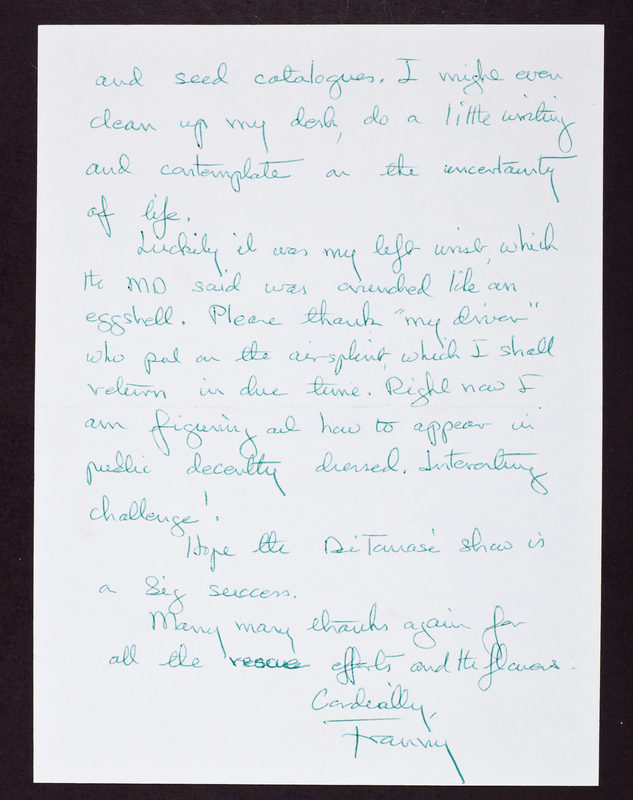 and seed catalogues. I might even
clean up my desk, do a little writing
and contemplate on the uncertainty
of life.
Luckily it was my left wrist, which
the MD said was crunched like an
eggshell. Please thank "my driver"
who put on the airsplint, which I shall
return in due time. Right now I
am figuring out how to appear in
public decently dressed. Interesting
challenge!
Hope the DiTomasé show is
a big success.
Many many thanks again for
all the rescue efforts and the flowers.
Cordially,
Franny